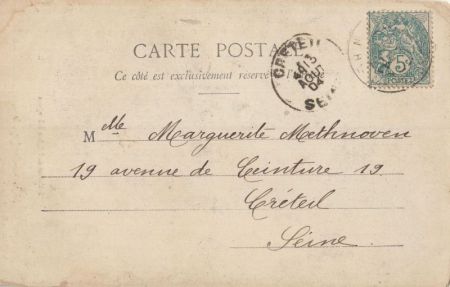 CARTE POSTALE
Ce côté est exclusivement réservé à l'
CRETEIL
13
AOUT
04
SEINE
5c
Mlle Marguerite Methnoven
19 avenue de Ceinture 19
Créteil
Seine